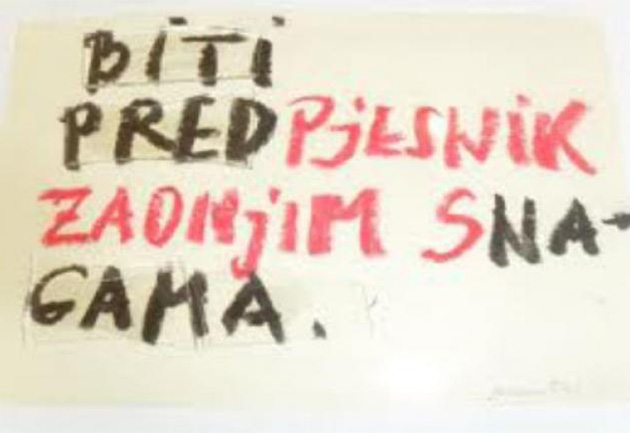 BiTi
PREDPjESNiK
ZADNjiM SNA-
GAMA.